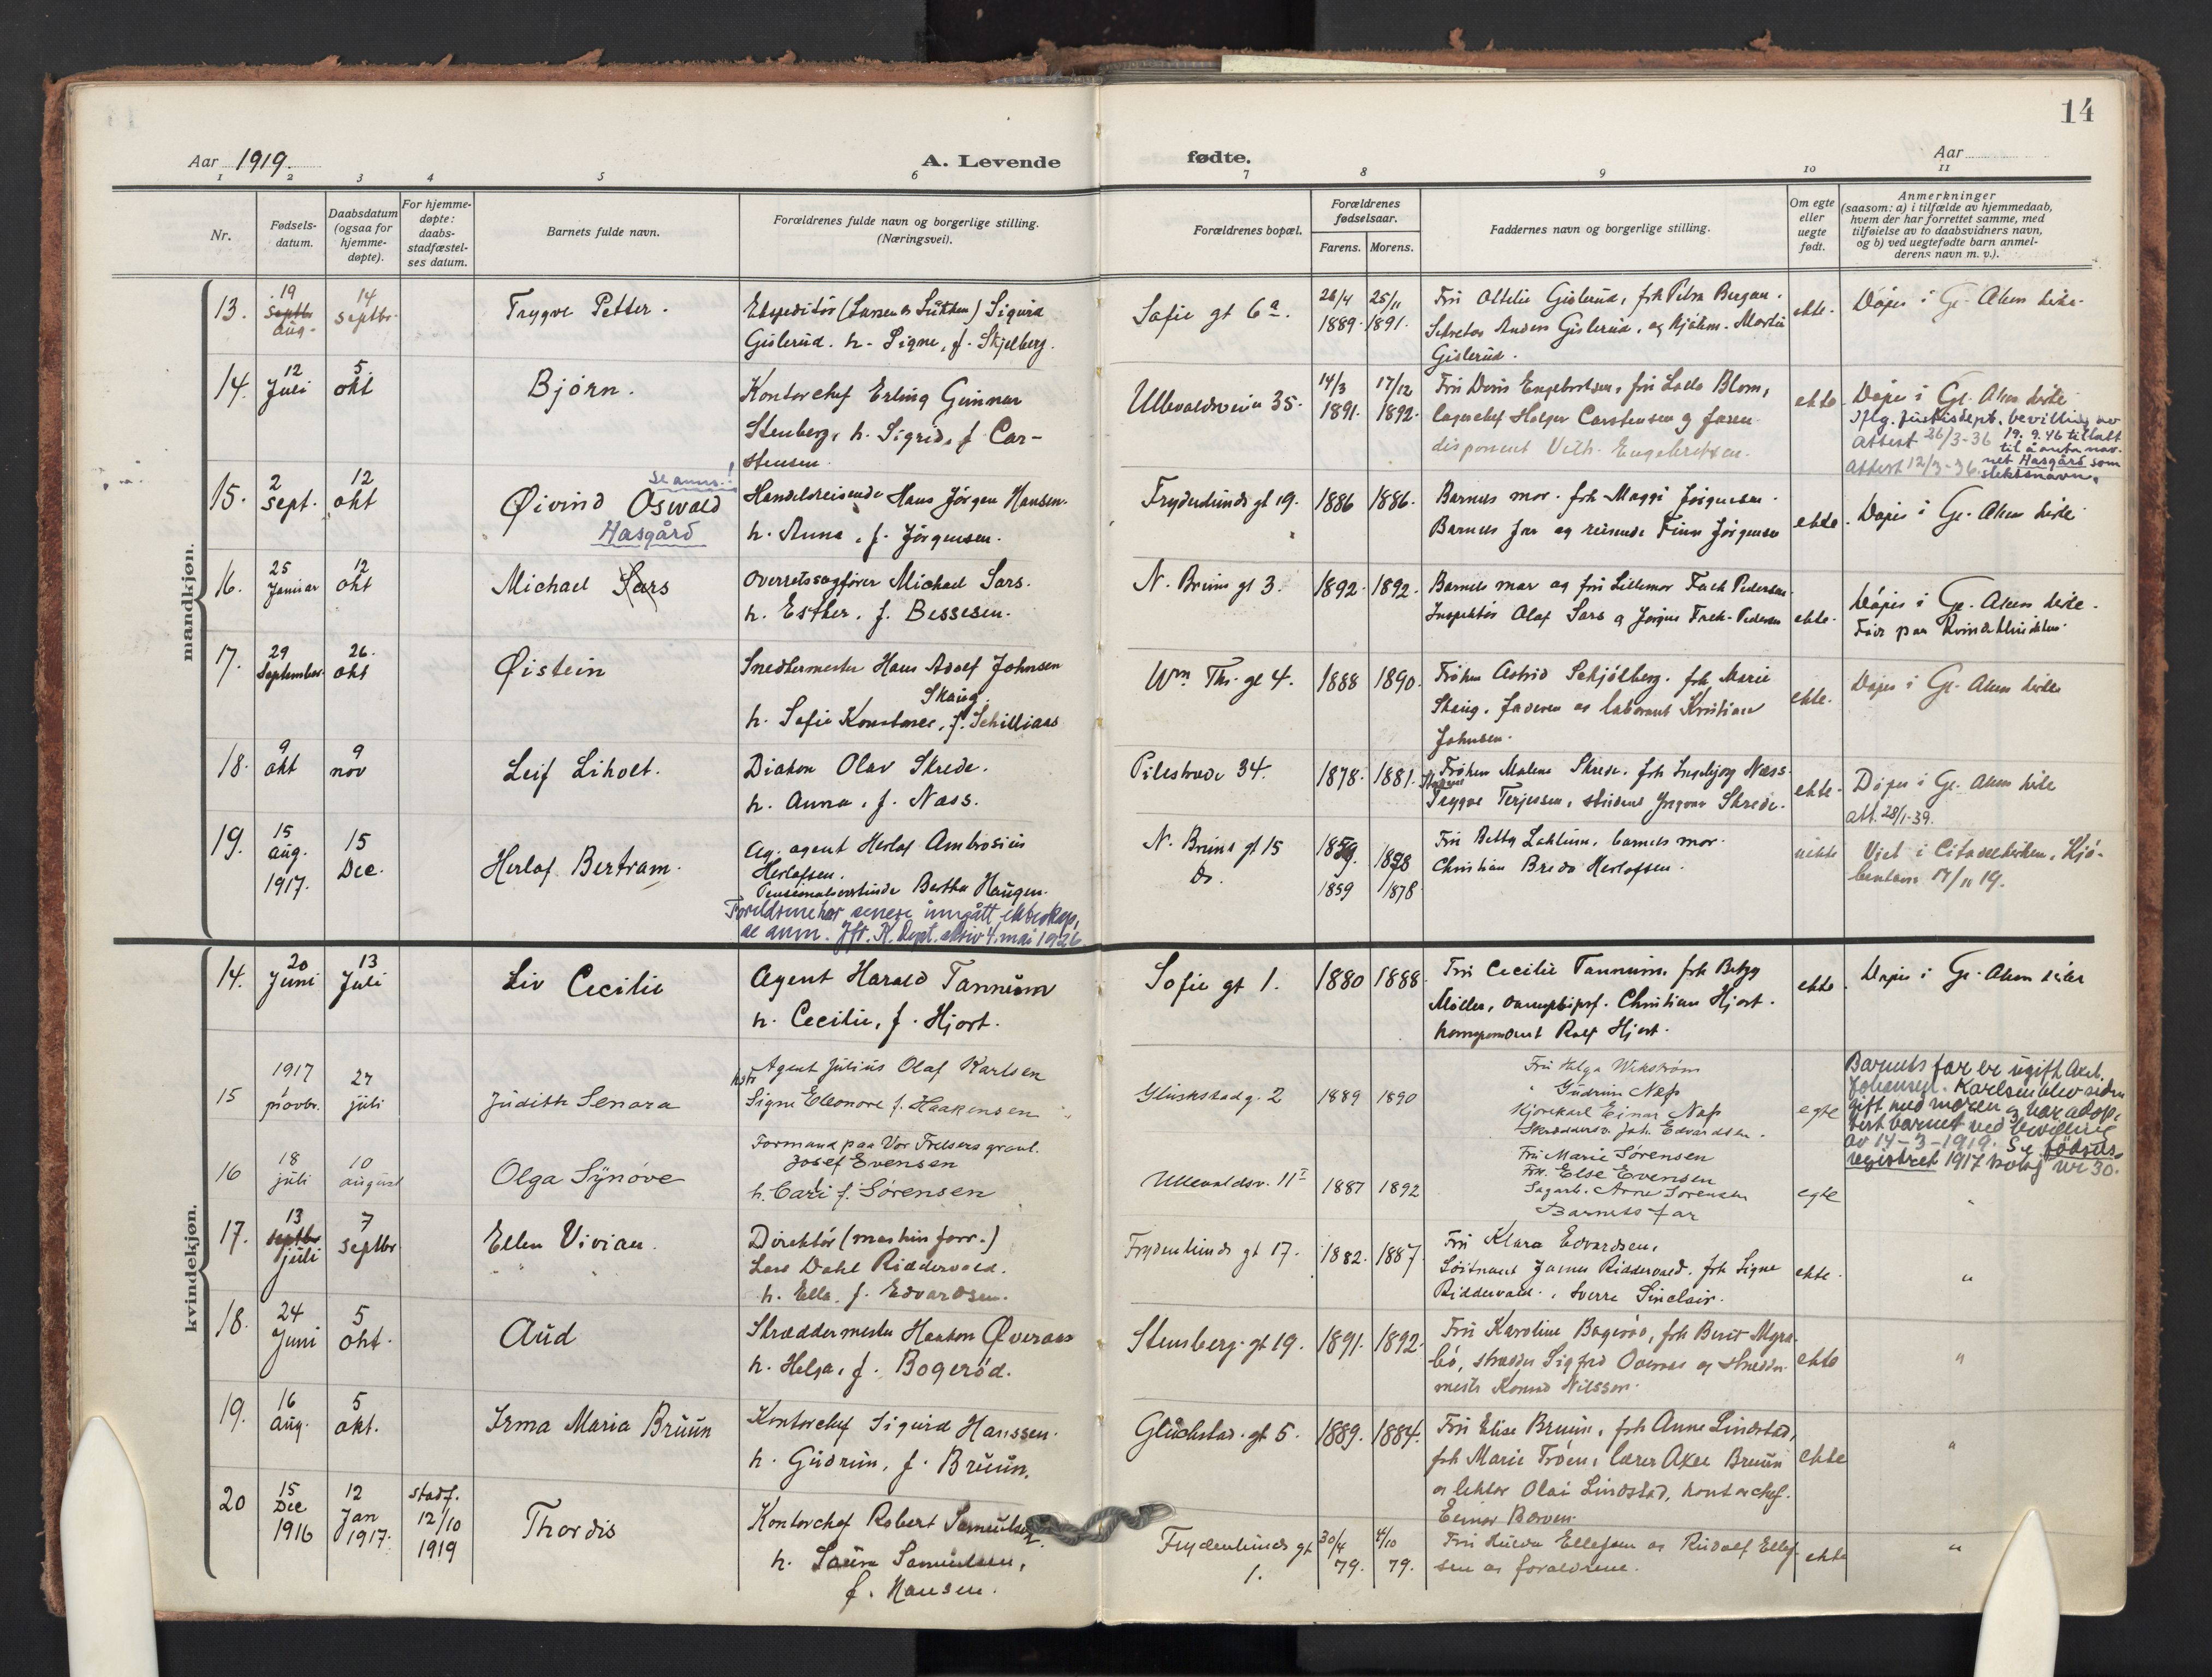 14
Aar 1919.
A. Levende
fødte.
Aar
1 2 3 4 5 6 7 8 9 10 11
Nr.
Fødsels-
datum.
Daabsdatum
(ogsaa for
hjemme-
døpte).
For hjemme-
døpte:
daabs-
stadfæstel-
ses datum.
Barnets fulde navn.
Forældrenes fulde navn og borgerlige stilling.
(Næringsvei).
Forældrenes bopæl.
Forældrenes
fødselsaar.
Farens. Morens.
Faddernes navn og borgerlige stilling.
Om egte
eller
uegte
født.
Anmerkninger
(saasom: a) i tilfælde av hjemmedaab,
hvem der har forrettet samme, med
tilføielse av to daabsvidners navn,
og b) ved uegtefødte barn anmel-
derens navn m. v.).
mandkjøn.
13.
19
Septbr
Aug.
14
septbr.
Trygve Petter.
Ekspeditör Sigurd
Gislerud. h. Signe, f. Skjelberg.
Sofie gt 6a.
26/4 25/11
1889. 1891.
Fru Ottilie Gislerud, frk Petra Bergan.
Anders Gislerud, og Martin
Gislerud.
ekte.
Döpes i Gl. Akers kirke.
14.
12
Juli
5.
okt
Björn.
Kontorchef Erling Gunnar
Stenberg, h. Sigrid, f. Car-
stensen.
Ullevaldsveien 35.
14/3 17/12
1891. 1892.
Fru Doris Engebretsen, fru Lalla Blom,
lagerchef Holger Carstensen og faren
disponent Vilh. Engebretsen.
ekte.
Döpes i Gl. Akers kirke
Iflg. Justisdept. bevilling av
19. 9. 46 tillatt
til å anta nav-
net Hasgård som
slektsnavn.
Attest 26/3-36
Attest 12/3-36.
15.
2
sept.
12
okt
se anm.!
Øivind Oswald
Hasgård
Handelsreisende Hans Jörgen Hansen.
h. Anna, f. Jörgensen.
Frydenlunds gt 19.
1886 1886.
Barnets mor. frk Maggi Jörgensen.
Barnets far og reisende Finn Jörgensen
ekte.
Döpes i Gl. Akers kirke
16.
25
Januar
12
okt
Michael Sars
Overretssagförer Michael Sars.
h. Esther, f. Bessesen.
N. Bruns gt 3.
1892. 1892.
Barnets mor og fru Lillemor Fack Pedersen.
Inspektör Olaf Sars og Jörgen Fack-Pedersen
ekte.
Döpes i Gl. Akers kirke.
Född paa Kvindeklinikken.
17.
29
September.
26.
okt
Øistein
Snedkermester Hans Adolf Johnsen
Skaug
h. Sofie Konstance, f. Schilliaas
Wm. Thr. gt 4.
1888 1890.
Fröken Astrid Schjölberg. frk Marie
Skaug. faderen og laborant Kristian
Johnsen.
ekte.
Döpes i Gl. Akers kirke
18.
9
okt
9
nov
Leif Liholt.
Diakon Olav Skrede.
h. Anna, f. Næss.
Pilestrædet 34.
1878. 1881.
Fröken Malene Skrede. frk Ingebjorg Næss.
Trygve Terjessen, student Skrede.
ekte.
Döpes i Gl. Akers kirke
Att. 28/1-39.
19.
15
aug.
1917.
15
Dec.
Herlof Bertram.
Ag. agent Herlof Ambrosius
Herlofsen.
Pensionatsvertinde Bertha Haugen.
Foreldrene har senere inngått ekteskap,
se anm. Jfr. K. Dept. skriv 4. mai 1926
N. Bruns gt 15
Do.
1859. 1878
1859 1878
Fru Betty barnets mor.
Christian Bredo Herlofsen.
uekte
Viet i Citadelkirken, Kjö-
benhavn 17/11 19.
kvindekjøn.
14.
20
Juni
13
Juli
Liv Cecilie
Agent Harald Tannum
h. Cecilie, f. Hjort.
Sofie gt 1.
1880 1888
Fru Cecilie Tannum. frk Betzy
Möller, Christian Hjort.
korrespondent Rolf Hjort.
ekte.
Döpes i Gl. Akers kirke
15
1917
novbr.
27
juli
Judith Senora
Agent Julius Olaf Karlsen
hstr
Signe Eleonore f. Haakensen
Glückstadg. 2
1889 1890
Fru Helga Wikström
" Gudrun Næss
Kjörekarl Einar Næss
Skrædersv. Joh. Edvardsen.
egte
Barnets far er ugift Axel
Johansen. Karlsen blev siden
gift med moren og har adop-
tert barnet ved bevilling
av 14-3-1919. Se födsels-
registret 1917 nr 30.
16
18
juli
10
august
Olga Synöve
Formand paa Vor Frelsers gravl.
Josef Evensen
h. Cari f. Sörensen
Ullevaldsv. 11 I
1887 1892
Fru Marie Sörensen
Frk. Else Evensen
Sagarb. Arne Sörensen
Barnets far
egte
"
17.
13
septbr
juli
7
septbr
Ellen Vivian.
Direktör (maskinforr.)
Lars Dahl Riddervold.
h. Ella, f. Edvardsen.
Frydenlunds gt 17.
1882. 1887
Fru Klara Edvardsen,
Löitnant James Riddervold. frk Signe
Riddervold., Sverre Sinclair.
ekte.
"
18.
24
Juni
5
okt.
Aud
Skreddermester Haakon Øveraas
h. Helga, f. Bogeröd.
Stensberg. gt 19.
1891. 1892.
Fru Karoline Bogeröd, frk Berit Myra-
bö, skredder Sigfred Overaas og skredder
mester Konrad Nilsson.
ekte
"
19.
16
Aug.
5
okt.
Irma Maria Bruun
Kontorchef Sigurd Hanssen.
h. Gudrun, f. Bruun.
Glückstad. gt 5.
1889. 1884.
Fru Elise Bruun, frk Anne Lindstad,
frk Marie Tröen, lærer Axel Bruun
og lektor Olai Lindstad, kontorchef.
Einar Borven.
ekte
"
20
15
Dec
1916
12
Jan
1917.
stadf.
12/10
1919
Thordis
Kontorchef Robert Samuelsen
h. Laura Samuelsen,
f. Hansen.
Frydenlunds gt
1.
30/4 4/10
79. 79.
Fru Hulda Ellefsen og Rudolf Ellef-
sen og forældrene.
ekte
"